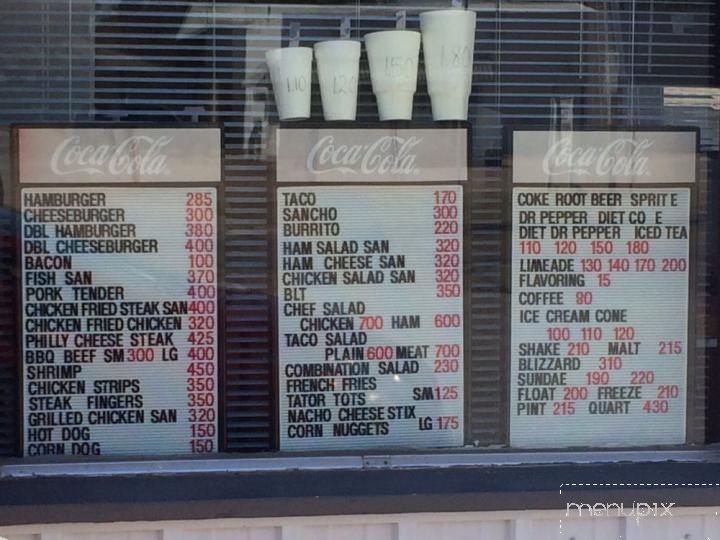 1.10 1.20 1.50 1.80
Coca-Cola
HAMBURGER 285
CHEESEBURGER 300
DBL HAMBURGER 380
DBL CHEESEBURGER 400
BACON 100
FISH SAN 370
PORK TENDER 400
CHICKEN FRIED STEAK SAN 400
CHICKEN FRIED CHICKEN 320
PHILLY CHEESE STEAK 425
BBQ BEEF SM 300 LG 400
SHRIMP 450
CHICKEN STRIPS 350
STEAK FINGERS 350
GRILLED CHICKEN SAN 320
HOT DOG 150
CORN DOG 150
Coca-Cola
TACO 170
SANCHO 300
BURRITO 220
HAM SALAD SAN 320
HAM CHEESE SAN 320
CHICKEN SALAD SAN 320
BLT 350
CHEF SALAD
CHICKEN 700 HAM 600
TACO SALAD
PLAIN 600 MEAT 700
COMBINATION SALAD 230
FRENCH FRIES
TATOR TOTS SM 125
NACHO CHEESE STIX
CORN NUGGETS LG 175
Coca-Cola
COKE ROOT BEER SPRIT E
DR PEPPER DIET CO E
DIET DR PEPPER ICED TEA
110 120 150 180
LIMEADE 130 140 170 200
FLAVORING 15
COFFEE 80
ICE CREAM CONE
100 110 120
SHAKE 210 MALT 215
BLIZZARD 310
SUNDAE 190 220
FLOAT 200 FREEZE 210
PINT 215 QUART 430
menupix